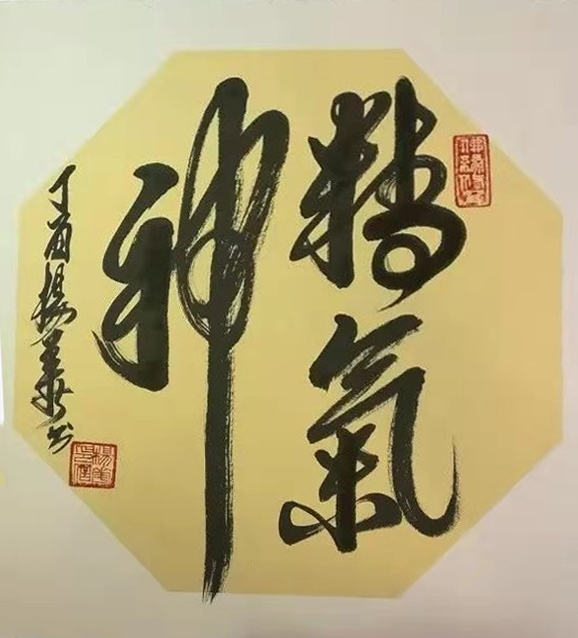 精氣
神
丁酉楊書